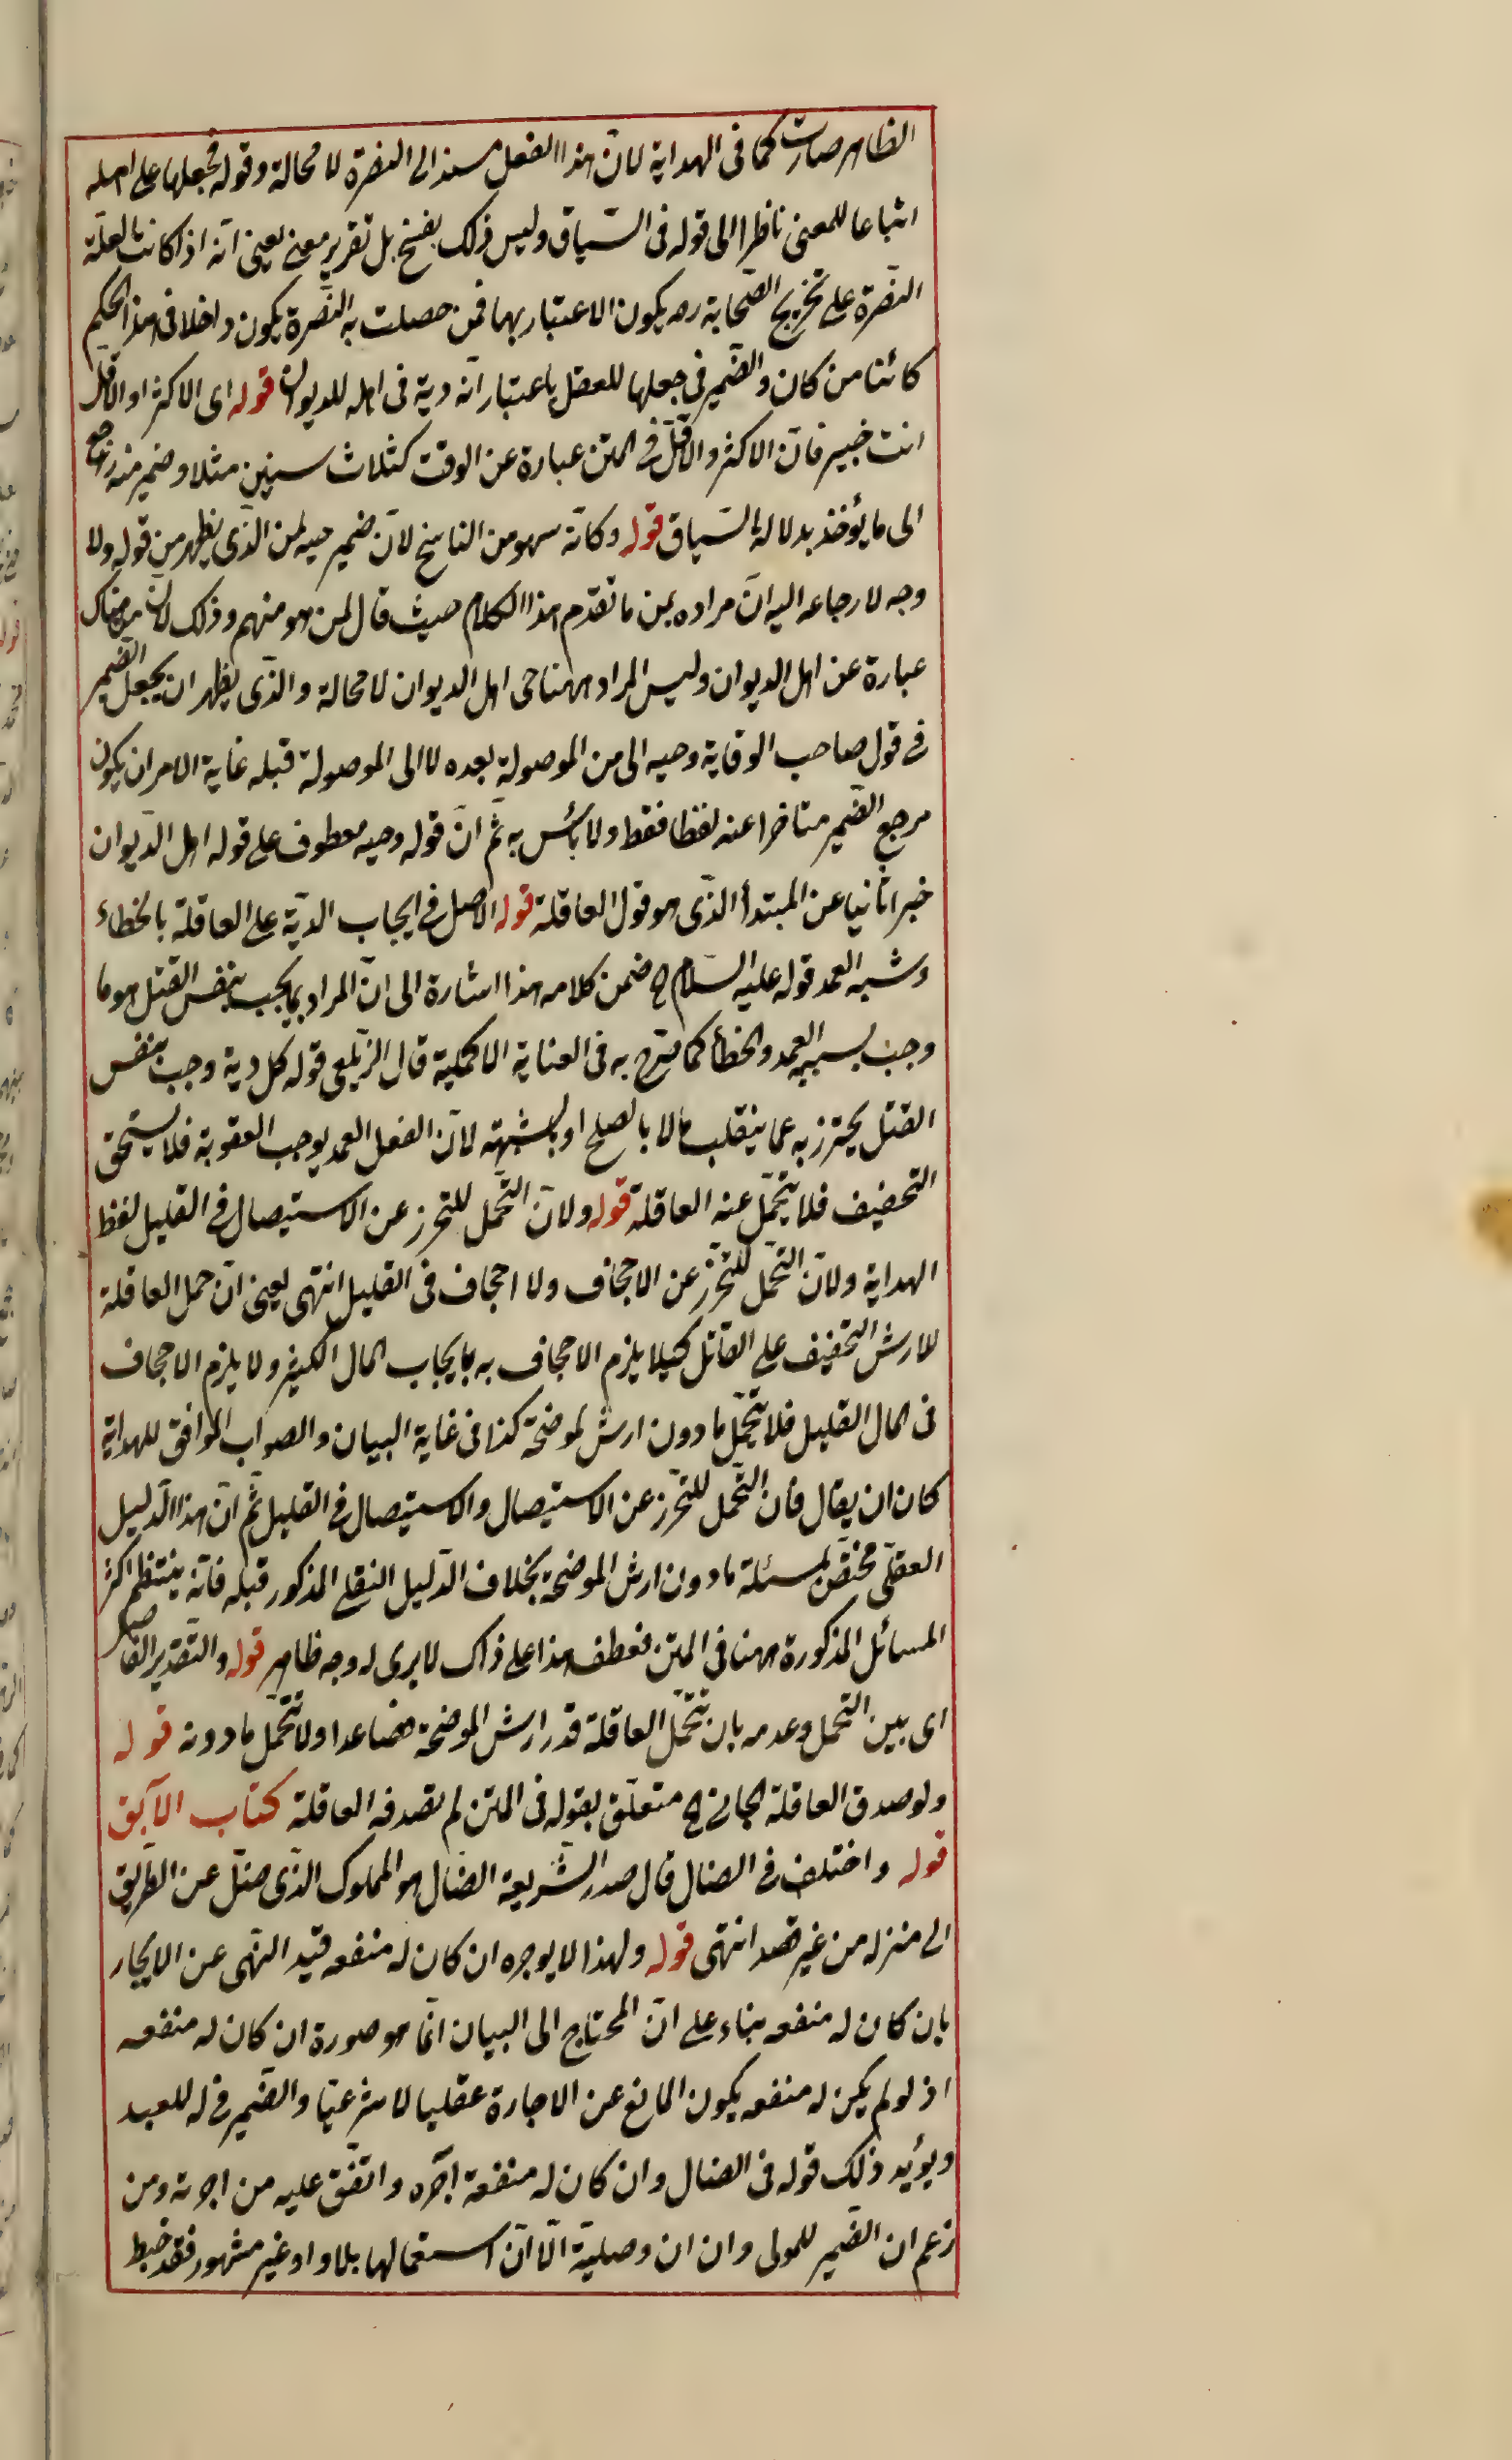 الظاهر صارت كما فى الهداية لان هذا الفعل مسند الى النصرة لا محالة وقوله فجعلها على اهله
اتباعا للمعنى ناظرا الى قوله فى السّياق وليس ذلك بفسخ بل تقرير معنى يعنى انّه اذا كانت العلة
النصّرة على تخريج الصّحابة رضه يكون الاعتبار بها فمن حصلت به النصّرة يكون داخلا فى هذا الحكم
كائنا من كان والضّمير فى جعلها للعقل باعتبار انّه دية فى اهله للديوان قوله اى الاكثر او الاقلّ
انت خبير فانّ الاكثر والاقلّ فى المتن عبارة عن الوقت كثلاث سنين مثلا وضمير منه راجع
الى ما يؤخذ بدلالة السّياق قوله وكانّه سهو من الناسخ لانّ ضمير حيه لمن الذّى يظهر من قوله ولا
وجه لارجاعه اليه انّ مراده بمن ما تقدّم هذا الكلام حيث قال لمن هو منهم وذلك لان من هناك
عبارة عن اهل الديوان وليس المراد ههنا حى اهل الديوان لا محالة والذّى يظهر ان يجعل الضّمير
فى قول صاحب الوقاية وحيه الى من الموصولة بعده لا الى الموصولة قبله غاية الامر ان يكون
مرجع الضّمير متاخرا عنه لفظا فقط ولا بائس به ثمّ انّ قوله وحيه معطوف على قوله اهل الدّيوان
خبرا ثانيا عن المبتدأ الذّى هو قول العاقلة قوله الاصل فى ايجاب الديّة على العاقلة بالخطاء
وشبه العمد قوله عليه السّلام ح ضمن كلامه هذا اشارة الى انّ المراد بما يجب بنفس القتل هو ما
وجب بسببه العمد والخطأ كما صّرح به فى العناية الاكملية قال الزّيلعى قوله كل دية وجب بنفس
القتل يحترز به عما ينقلب مالا بالصلح او بالشبهة لانّ الفعل العمد يوجب العقوبة فلا يستحق
التخفيف فلا يتحمّل عنه العاقلة قوله ولانّ التّحمل للتحرز عن الاستيصال فى القليل لفظ
الهداية ولانّ التّحمل للتّحرّز عن الاجحاف ولا اجحاف فى القليل انتهى يعنى انّ حمل العاقلة
للارش التخفيف على القاتل كيلا يلزم الاجحاف به بايجاب المال الكثير ولا يلزم الاجحاف
فى المال القليل فلا يتحمّل ما دون ارش الموضحة كذا فى غاية البيان والصواب الموافق للهداية
كان ان يقال فان التّحمل للتحّرز عن الاستيصال والاستيصال فى القليل ثمّ انّ هذا الدّليل
العقلّى مختصّ لمسئلة ما دون ارش الموضحة بخلاف الدّليل النقلى المذكور قبله فانّه ينتظم اكثر
المسائل المذكورة ههنا فى المتن فعطف هذا على ذاك لا يرى له وجه ظاهر قوله والتّقدير الفاصل
اى بين التحمل وعدمه بان تتحمّل العاقلة قدر ارش الموضحة فصاعدا ولا تتحّمل ما دونه قوله
ولو صدق العاقلة الجانى ح متعلّق بقوله فى المتن لم تصدقه العاقلة كتاب الآبق
قوله واختلف فى الضال قال صدر الشّريعة الضال هو المملوك الذّى ضلّ عن الطّريق
الى منزله من غير قصد انتهى قوله ولهذا لا يوجره ان كان له منفعه قيد النّهى عن الايجار
بان كان له منفعه بناء على انّ المحتاج الى البيان انّما هو صورة ان كان له منفعه
اذ لو لم يكن له منفعه يكون المانع عن الاجارة عقليا لا شرعيّا والضّمير فى له للعبد
ويؤيد ذلك قوله فى الضال وان كان له منفعة آجره واتّفق عليه من اجرته ومن
زعم ان الضّمير للمولى وان ان وصليّة الّا انّ استعمالها بلا واو غير مشهور فقد خبط